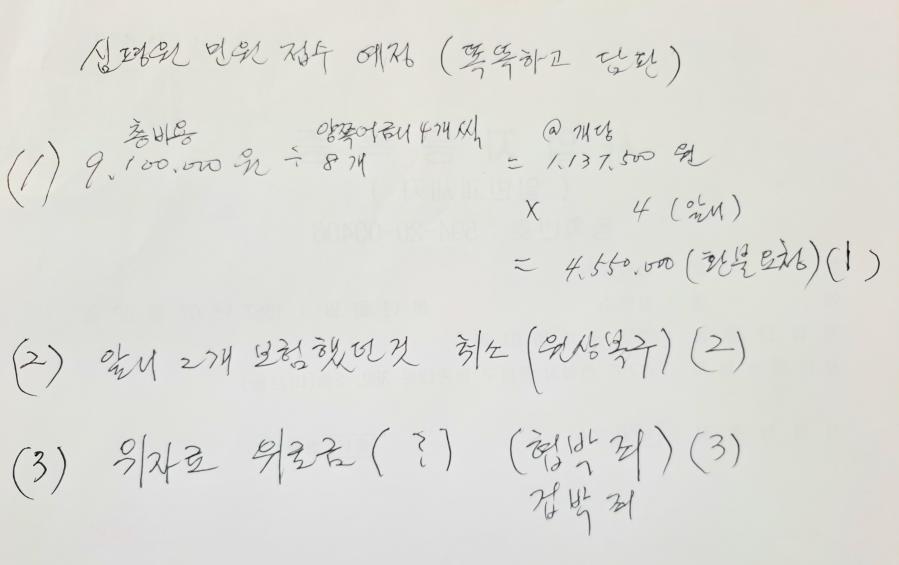 심평원 민원 접수 예정 (똑똑하고 담판)
총비용 양쪽어금니 4개씩 @ 개당
(1) 9.100.000 원 ÷ 8개 = 1.137.500 원
× 4 (앞니)
= 4.550.000 (환불요청) (1)
(2) 앞니 2개 보험했던것 취소 (원상복구) (2)
(3) 위자료 위로금 ( ? ) (협박죄) (3)
겁박죄